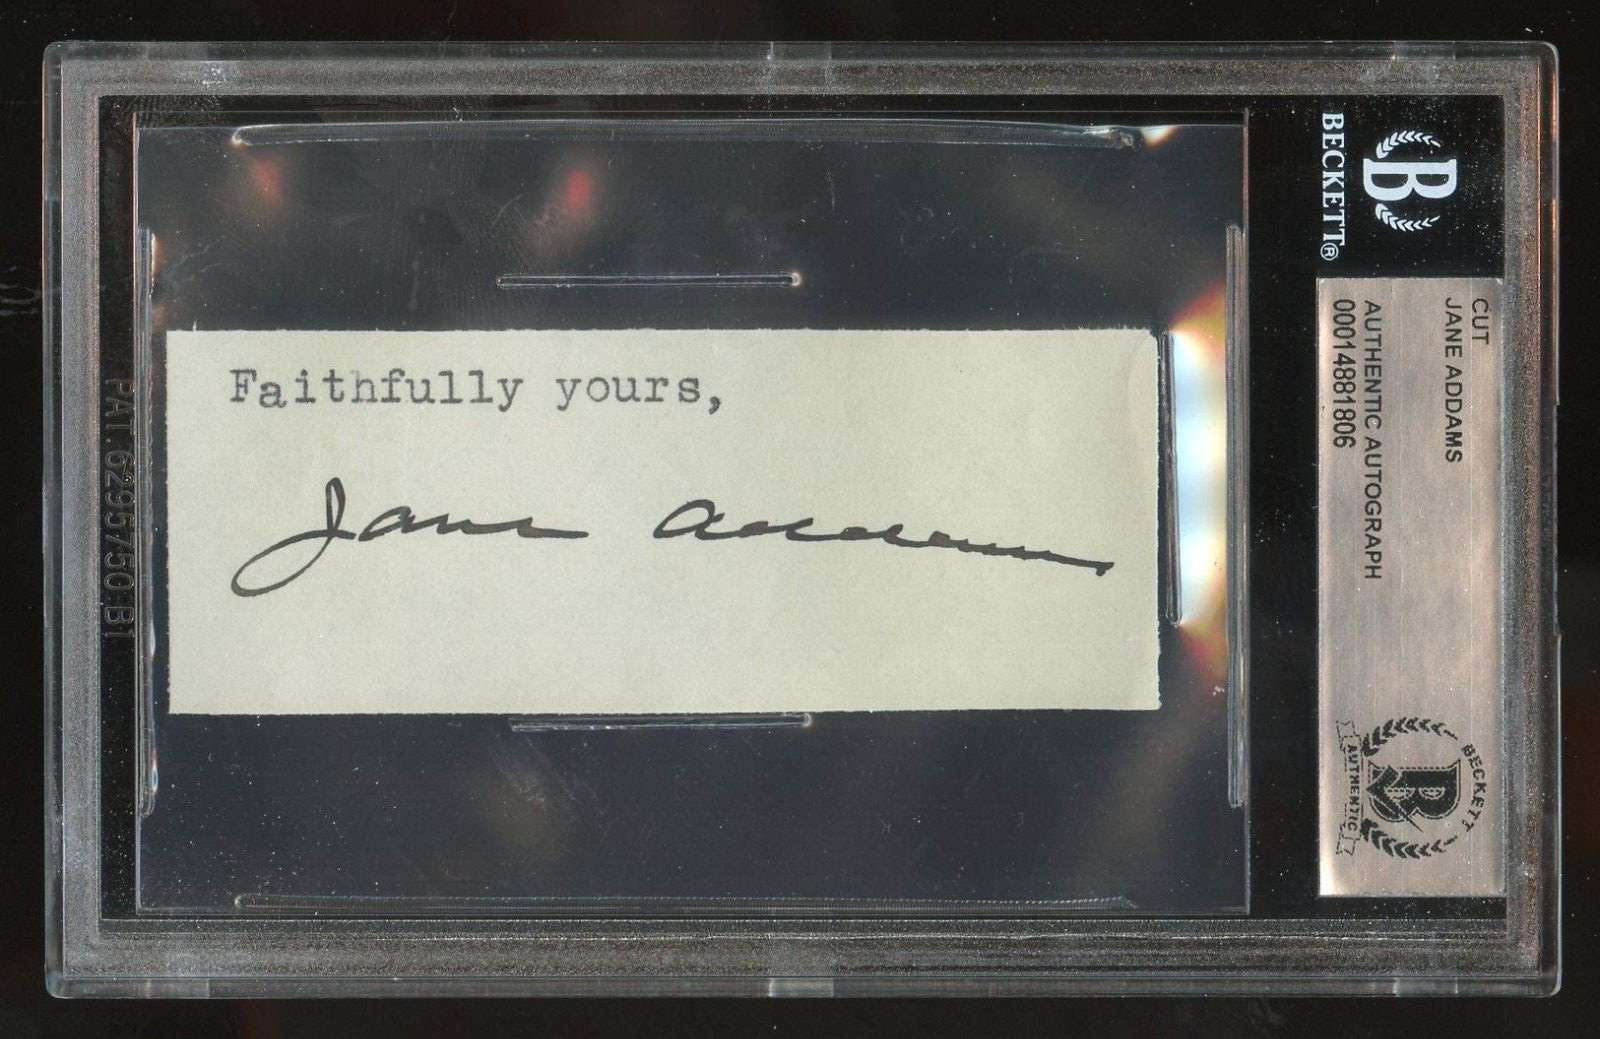 Faithfully yours,
Jane Addams
BECKETT®
B
CUT
JANE ADDAMS
AUTHENTIC AUTOGRAPH
00014881806
BECKETT
B
AUTHENTIC
PAT. 6295750 B1